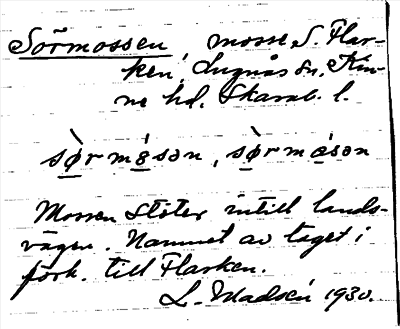 Sörmossen, mosse, S. Flar-
ken, Lugnås sn. Kin-
ne hd. Skarab. l.
sø̀rmósən, sø̀rmósən
Mossen stöter intill lands-
vägen. Namnet av läget i
förh. till Flarken.
L. Madsén 1930.